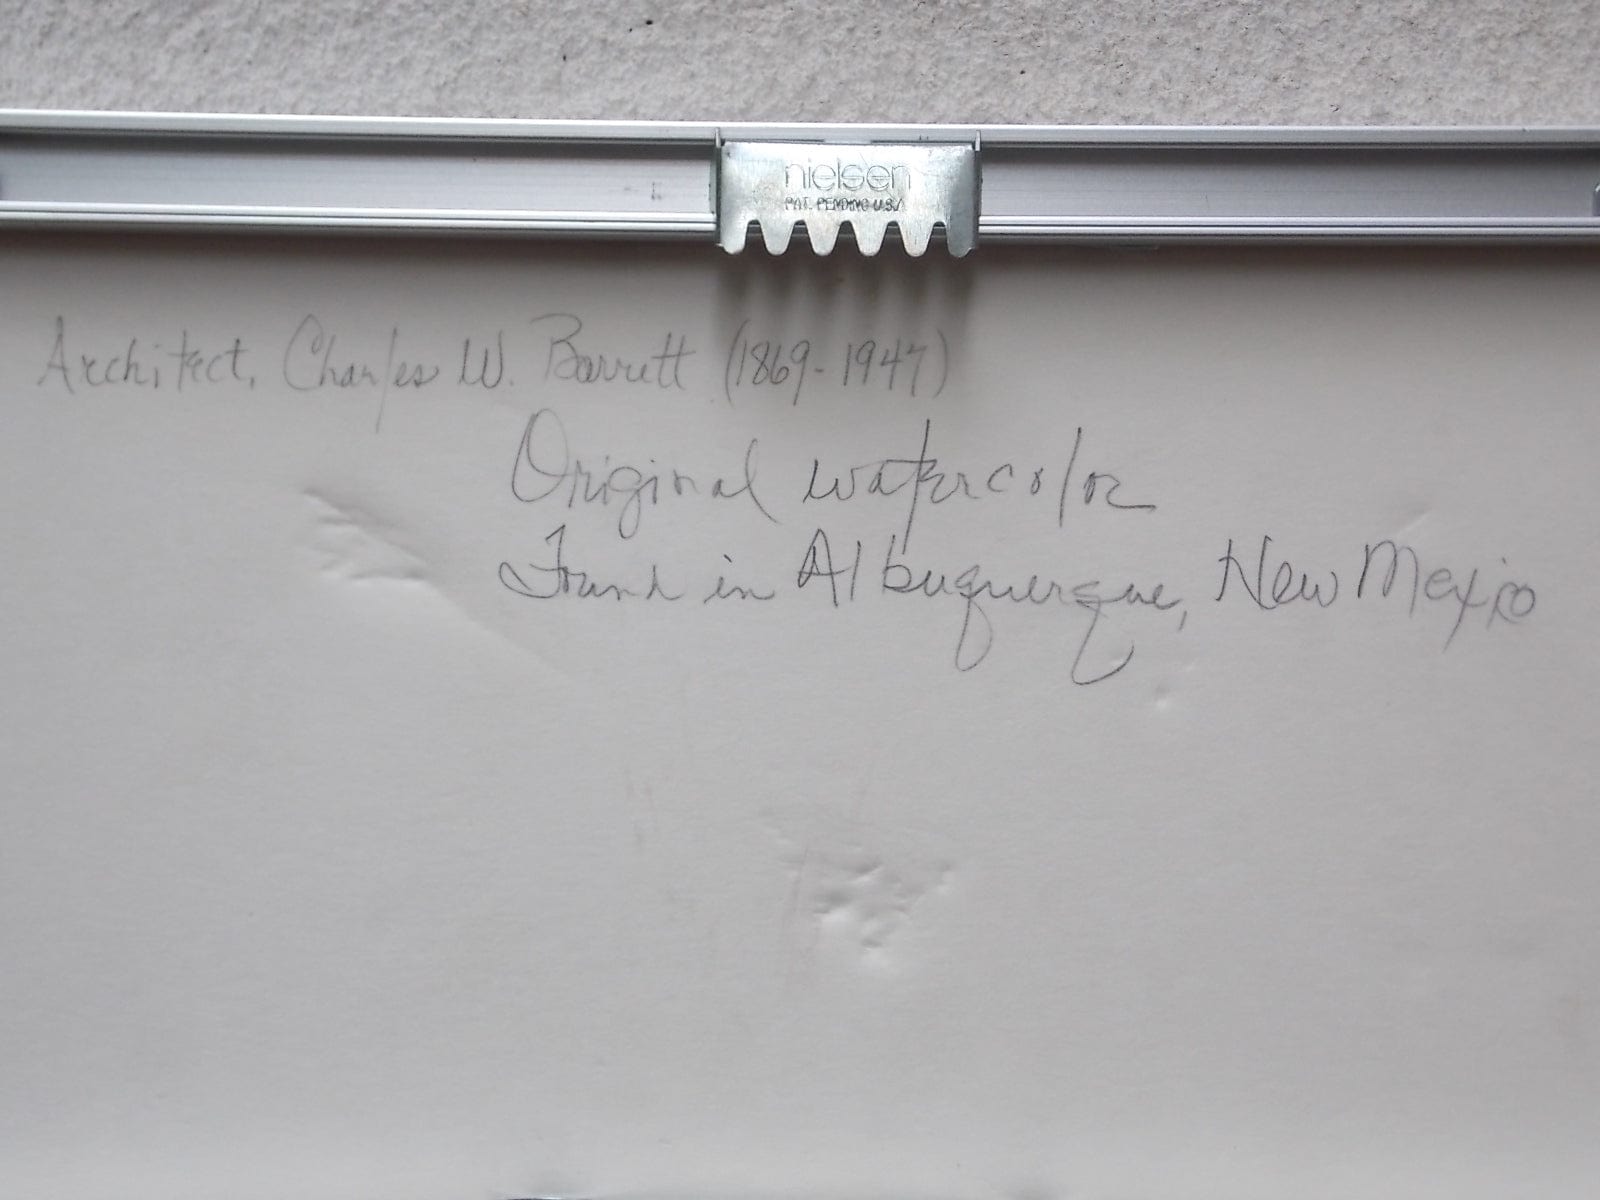 nielsen
PAT. PENDING U.S.A
Architect, Charles W. Barrett (1869-1947)
Original watercolor
Found in Albuquerque, New Mexico